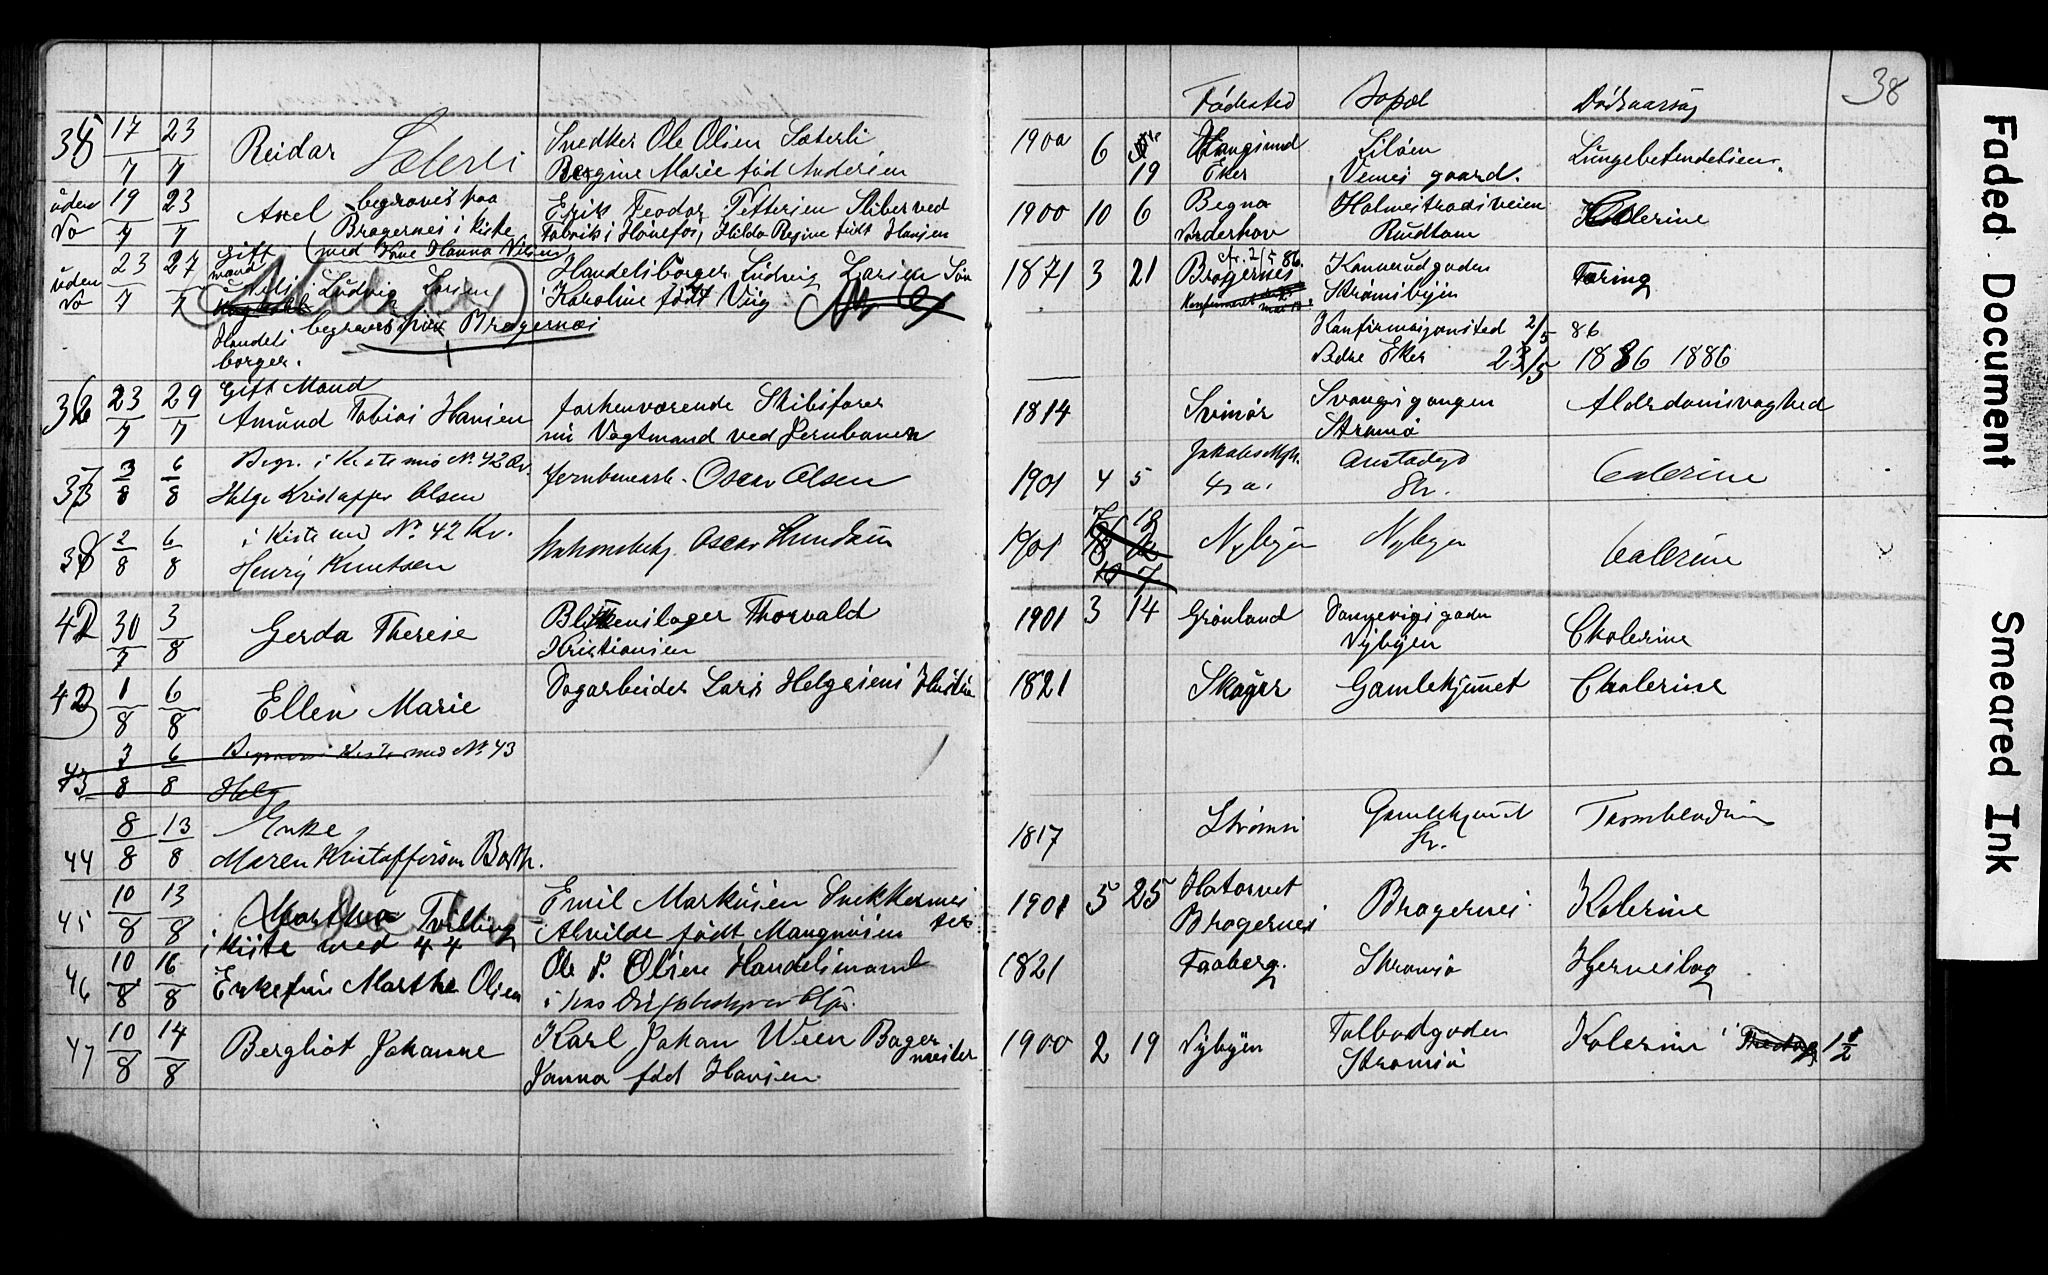 38
Fødested Bopæl Dødsaarsag
35 17/7 23/7 Reidar Sæterli
Snedker Ole Olsen Sæterli
Bergine Marie fød Andersen
1900 6 19 Haugsund Eker
Vemes gaard.
Lungebetendelsen
uden No 19/7 23/7 Axel begraves paa
Bragernes i kiste
med Kone Hanna Nilsen
Erik Teodor Pettersen Sliber ved
Fabrik i Hønefos, Hilda Regine født Hansen
1900 10 6 Begna
Norderhov
Holmestrandsveien
Rundtom
Kolerine
uden No 23/7 27/7 Gift mand
Ludvig Larsen
Handels
borger.
begraves fra Bragernes
Handelsborger Ludvig Larsen Søn
Karoline født Viig
1871 3 21 Bragernes
Strømsbyen
Tæring
Konfirmasjonsted 2/5 86
Nedre Eker 23/5 1886 1886
36 23/7 29/7 Gift Mand
Amund Tobias Hansen
forhenværende Skibsfører
nu Vagtmand ved Jernbanen
1814 Svinør
Svangsgangen
Strømsø
Alderdomsvaghed
37 3/8 6/8 Begr. i Kiste m No. 42 Kv.
Helge Kristoffer Olsen
Jernbanearb. Oscar Olsen
1901 4 5
Str.
Colerine
38 2/8 6/8 i Kiste med No. 42 Kv.
Henry Knutsen
Oscar
1901 Nybyen Nybyen Colerine
42 30/7 3/8 Gerda Therese
Blikkenslager Thorvald
Kristiansen
1901 3 14 Grønland
Nybyen
Cholerine
42 1/8 6/8 Ellen Marie
Dagarbeider Lars Helgesens Hustru
1821 Skoger Gamlekjunet Cholerine
43 3/8 6/8 Begraves i Kiste med No. 43
Helg
44 8/8 13/8 Enke
Maren Kristoffersen Barth.
1817 Strømsø
Str.
45 10/8 13/8 Martha Tvilling
i Kiste med 44
Emil Markusen Snekkermes
ter
Alvilde født Mangnusen
1901 5 25 Hatorvet
Bragernes
Bragernes
Kolerine
46 10/8 16/8 Enkefru Marthe Olsen
Ole P. Olsen Handelsmand
1821 Faaberg. Strømsø Hjerneslag
47 10/8 14/8 Bergliot Johanne
Karl Johan Wien Bager
mester
Janna fød Hansen
1900 2 19 Nybyen
Tolbodgaden
Strømsø
Kolerine 1 1/2
Faded Document
Smeared Ink